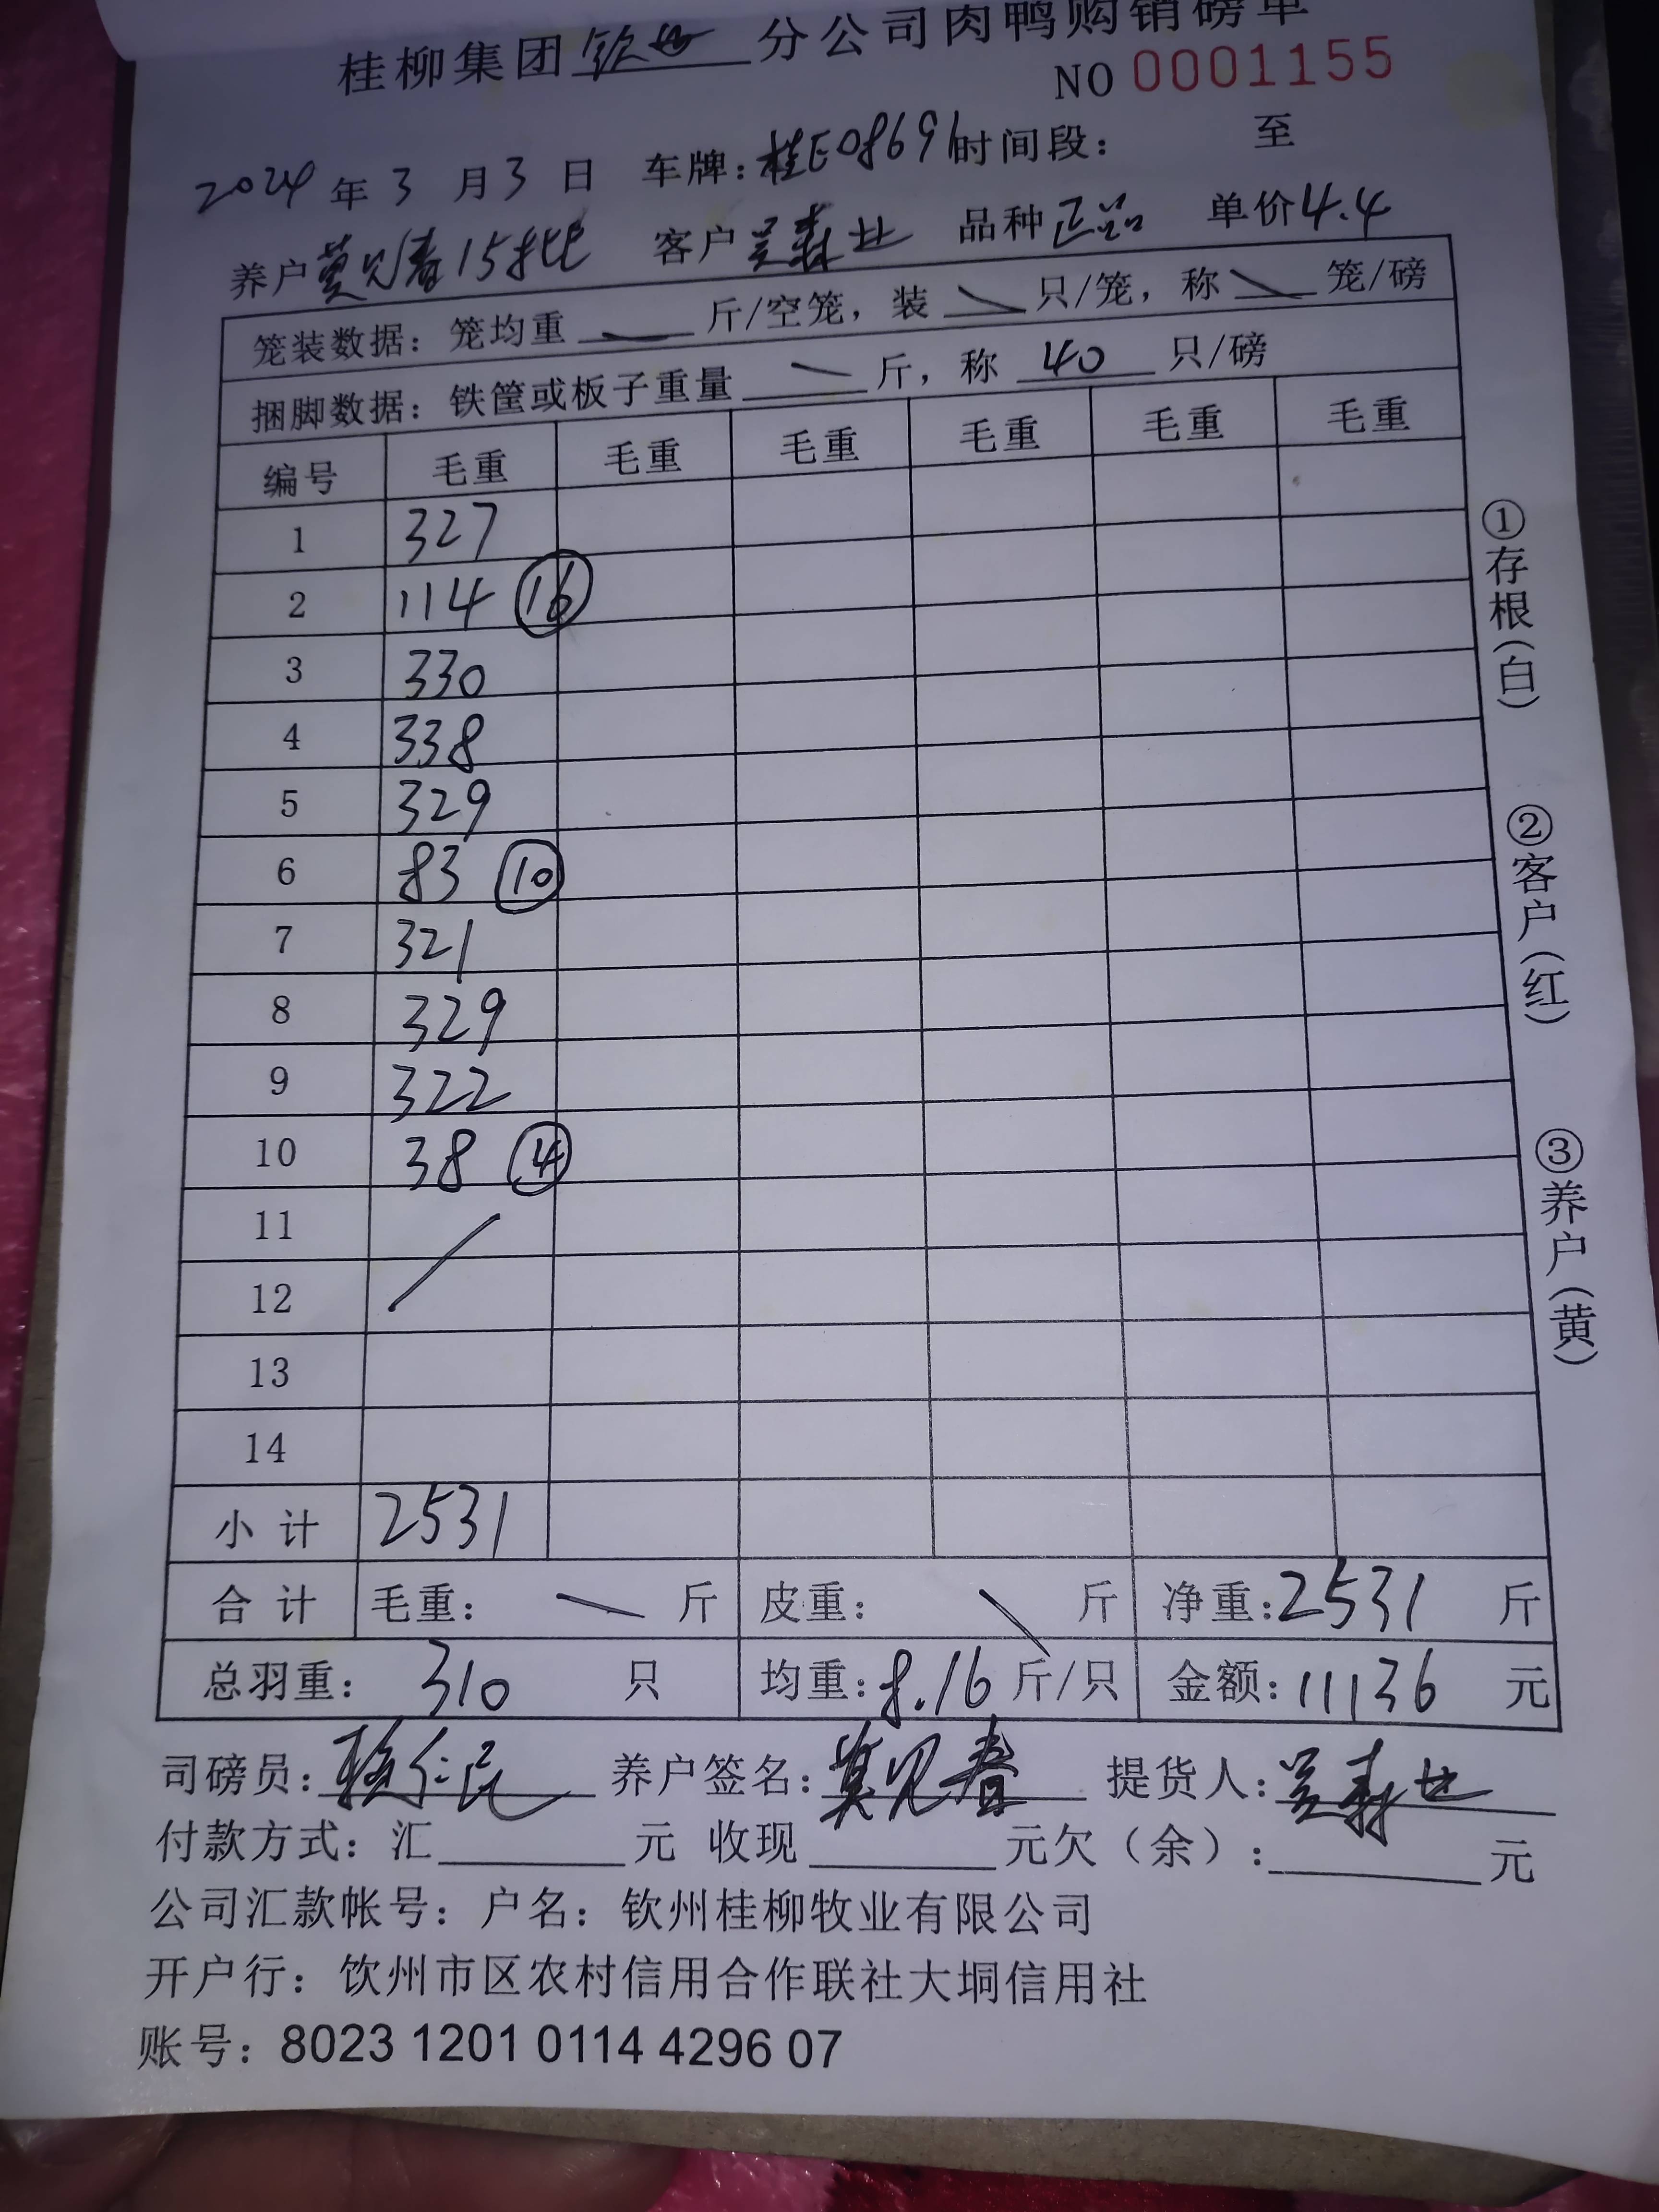 桂柳集团钦州分公司肉鸭购销磅单
NO 0001155
2024年3月3日 车牌:桂E08691时间段: 至
养户莫见春15批 客户吴森业 品种正品 单价4.4
笼装数据: 笼均重 斤/空笼, 装 只/笼, 称 笼/磅
捆脚数据: 铁筐或板子重量 斤, 称 40 只/磅
编号 毛重 毛重 毛重 毛重 毛重 毛重
1 327
2 114 ⑯
3 330
4 338
5 329
6 83 ⑩
7 321
8 329
9 322
10 38 ④
11
12
13
14
小计 2531
合计 毛重: 斤 皮重: 斤 净重:2531 斤
总羽重: 310 只 均重:8.16斤/只 金额:11136 元
司磅员: 养户签名:莫见春 提货人:吴森业
付款方式: 汇 元 收现 元欠(余): 元
公司汇款帐号: 户名: 钦州桂柳牧业有限公司
开户行: 饮州市区农村信用合作联社大垌信用社
账号: 8023 1201 0114 4296 07
①存根(白)
②客户(红)
③养户(黄)